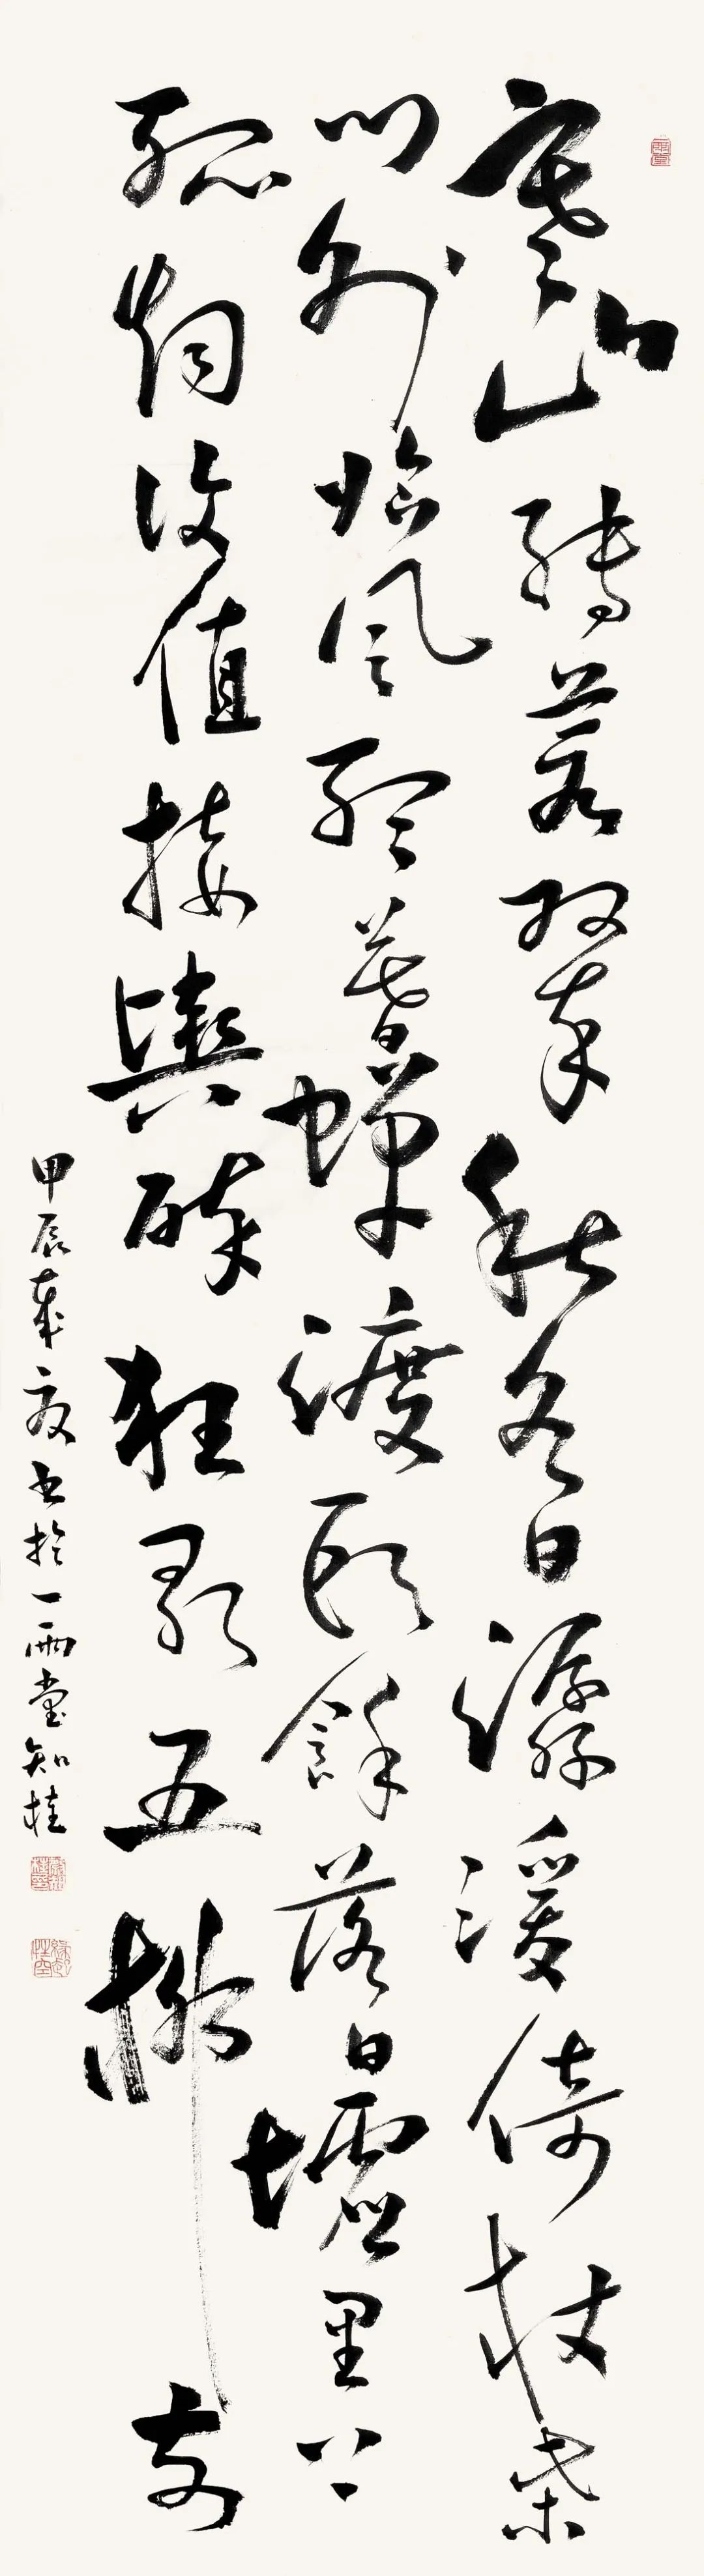 寒山轉蒼翠秋水日潺湲倚杖柴
門外臨風聽暮蟬渡頭餘落日墟里上
孤烟復值接輿醉狂歌五柳前
甲辰歲書於一雨堂知桂